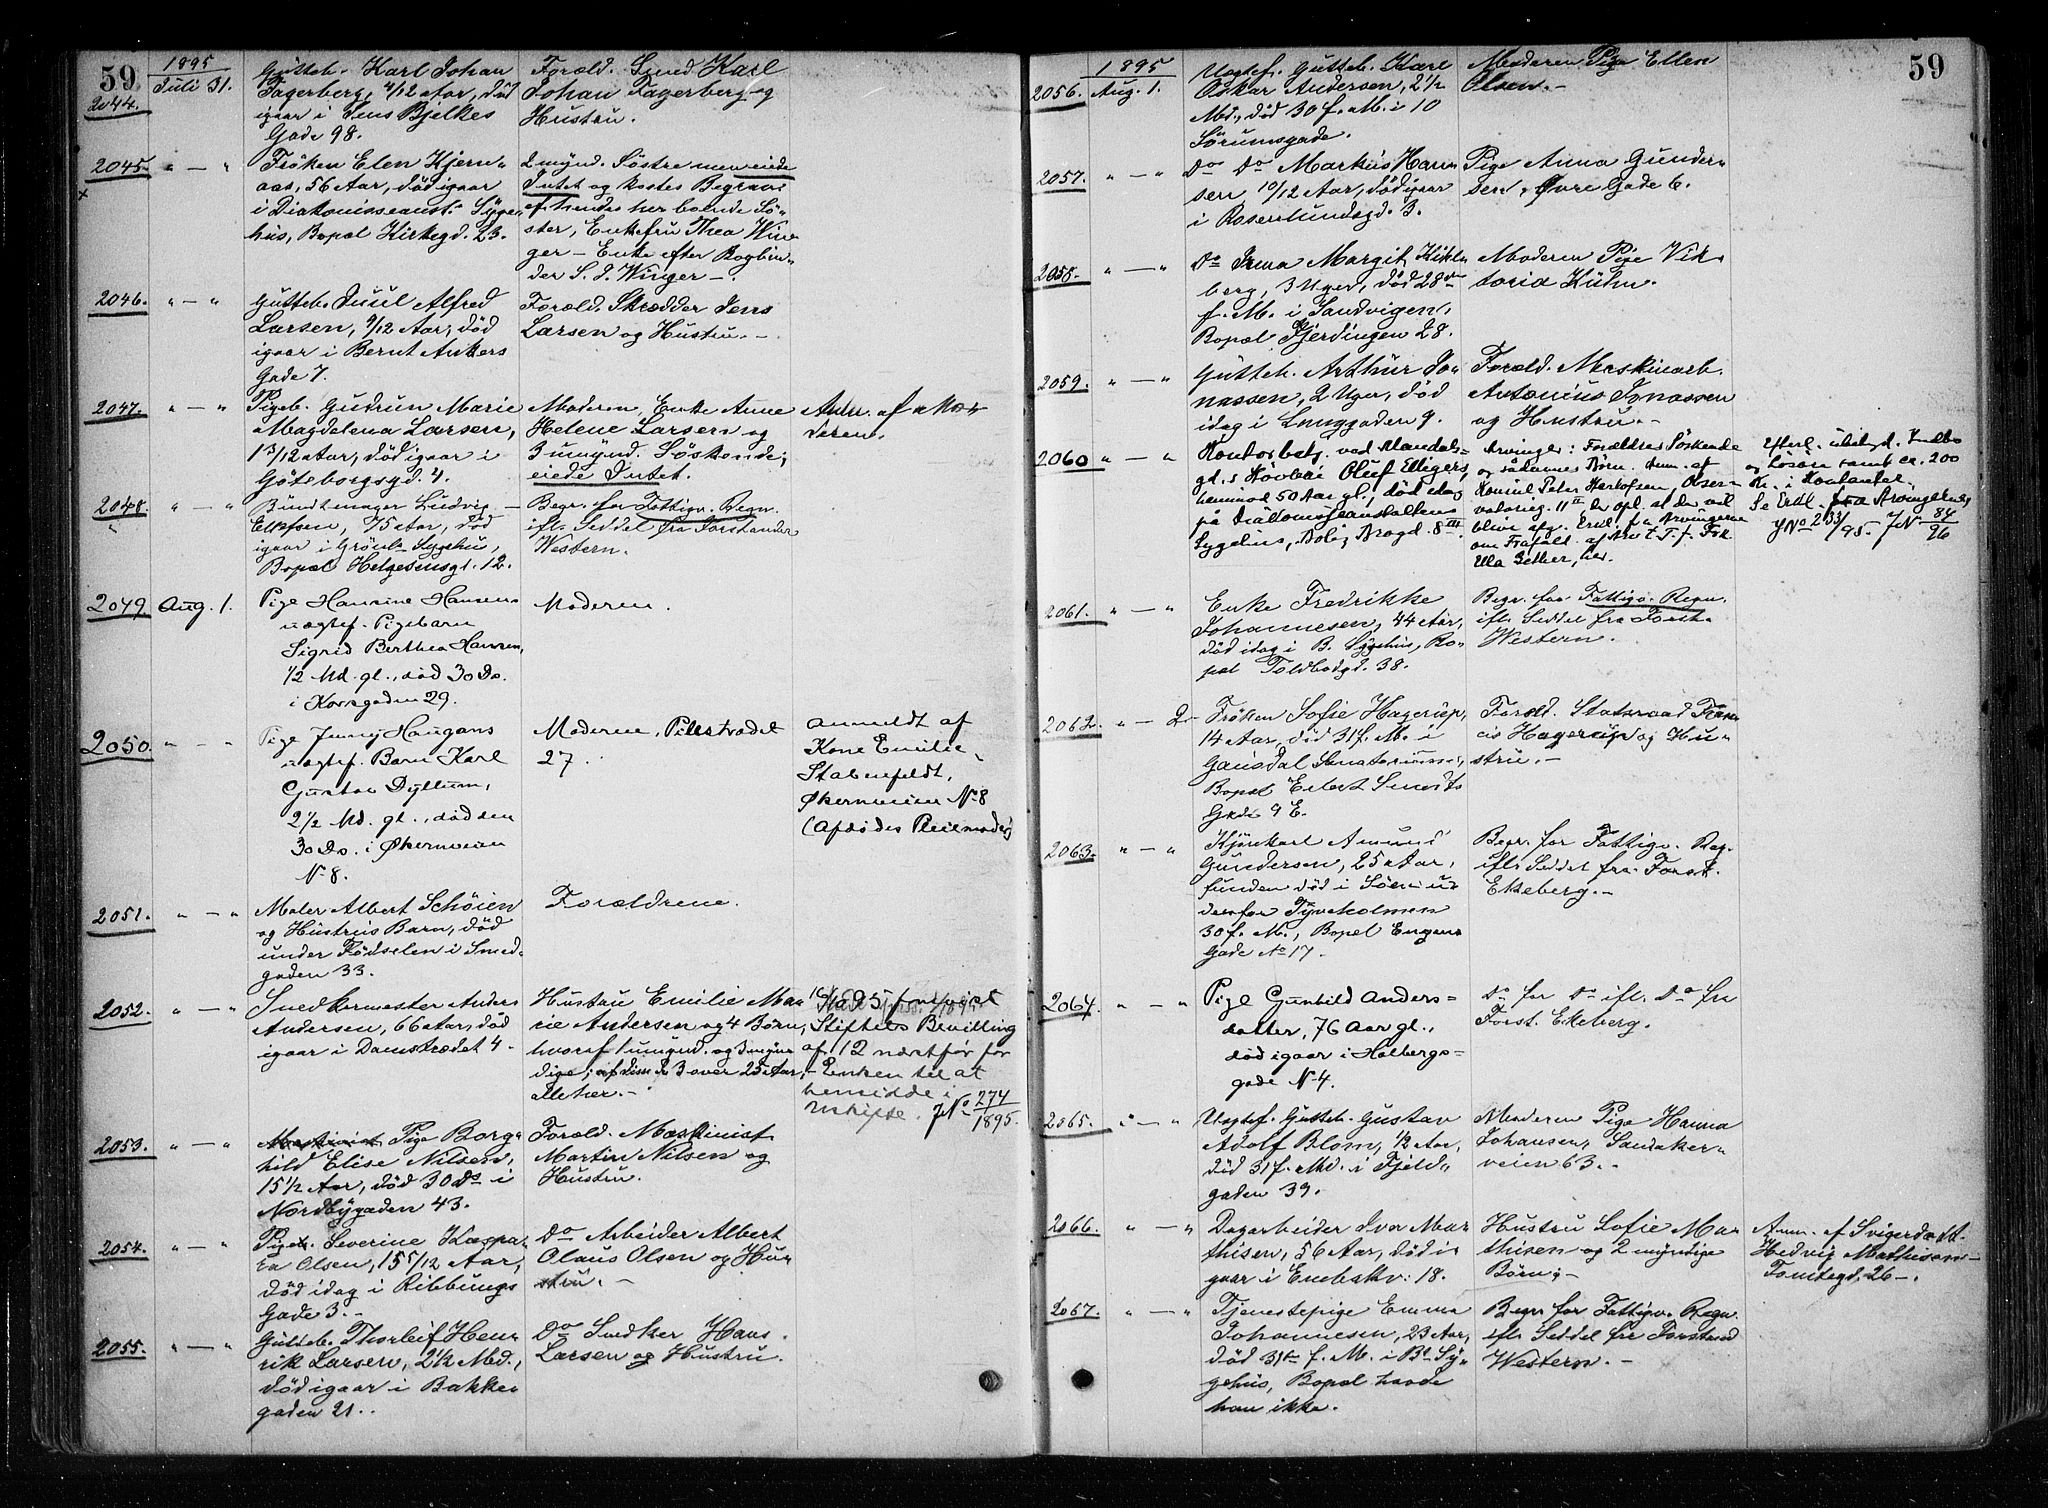 59
1895
2044. Juli 31.
Gütteb. Karl Johan
Fagerberg, 4/12 Aar, död
igaar i Jens Bjelkes
Gade 98.
Foræld. Smed Karl
Johan Fagerberg og
Hustru.
2045. " — "
Fröken Elen Kjern-
aas, 56 Aar, död igaar
i Diakonisseanst. Syge-
hus, Bopæl Kirkegd. 23.
2 mynd. Söstre men eiede
Intet og kostes Begrav.
af hendes her boende Sö-
ster, Enkefru Thea Win-
ger – Enke efter Bogbin-
der S. J. Winger –.
2046. " — "
Gütteb. Jusul Alfred
Larsen, 9/12 Aar, död
igaar i Bernt Ankers
Gade 7.
Foræld. Skrædder Jens
Larsen og Hustru. –
2047. " — "
Pigeb. Gudrun Marie
Magdelena Larsen,
1 3/12 Aar, död igaar i
Göteborgsgd. 4.
Moderen, Enke Anne
Helene Larsen og
3 umynd. Söskende;
eiede Intet.
Anm. af Mo-
deren.
2048. " — "
Bundtmager Ludvig
Ellefsen, 75 Aar, död
igaar i Grönl. Sygehus,
Bopæl Helgesensgt. 12.
Begr. for Fattigv. Regn.
ifl. Seddel fra Forstander
Western.
2049 Aug. 1.
Pige Hansine Hansens
uægtef. Pigebarn
Sigrid Berthea Hansen,
1/2 Md. gl., död 30 Do.
i Korsgaden 29.
Moderen.
2050. " — "
Pige Jenny Haugans
uægtef. Barn Karl
Gustav Dyllum,
2 1/2 Md. gl., död den
30 Do. i Økernveien
No 8.
Moderen, Pilestrædet
27.
Anmeldt af
Kone Emilie
Stabenfeldt,
Økernveien No 8
(Afdödes Pleiemoder)
2051. " — "
Maler Albert Schöien
og Hustrus Barn, död
under Födselen i Smed-
gaden 33.
Forældrene.
2052. " — "
Snedkermester Anders
Andersen, 66 Aar, död
igaar i Damstrædet 4 –
Hustru Emilie Ma-
rie Andersen og 4 Börn,
hvoraf 1 umynd. og 3 myn-
dige; af disse de 3 over 25 Aar,
alle her. –
forevist
Stiftets Bevilling
af 12 næstfør for
Enken til at
hensidde i
Uskifte. J No 274/1895.
2053. " — "
Pige Borg-
hild Elise Nilsen,
15 1/2 Aar, död 30 Do i
Nordbygaden 43.
Foræld. Maskinist
Martin Nilsen og
Hustru.
2054. " — "
Pigeb. Severine Kaspa-
ra Olsen, 1 5/12 Aar,
död idag i Ribbungs
Gade 3. –
Do Arbeider Albert
Claus Olsen og Hu-
stru. –
2055. " — "
Gütteb. Thorleif Hen-
rik Larsen, 2 1/2 Md.,
död igaar i Bakke-
gaden 21.
Do Snedker Hans
Larsen og Hustru.
59
1895
2056. Aug. 1.
Uægtef. Gütteb. Karl
Oskar Andersen, 2 1/2
Md., död 30 f. M. i 10
Sörumsgade.
Moderen Pige Ellen
Olsen. –
2057. " — "
Do Do Markus Han-
sen, 10/12 Aar, död igaar
i Rosenlundsgd. 3.
Pige Anna Gunder-
sen, Øvre Gade 6.
2058. " — "
Do Irma Margit Kihl-
berg, 3 Uger, död 28de
f. M. i Sandvigen,
Bopæl Fjerdingen 28.
Moderen Pige Vik-
toria Kühn.
2059. " — "
Gütteb. Arthur Jo-
nassen, 2 Uger, död
idag i Langgaden 9.
Foræld. Maskinarb.
Antonius Jonassen
og Hustru. –
2060 " — "
Kontorbetj. ved Mandals-
gd.s Oluf Elligers,
henimod 50 Aar gl., död idag
paa Diakonisseanstaltens
Sygehus, Bolig Brogd. 8 III
Arvinger: Forældres Söskende
og saadannes Börn. Anm. af
Konsul Peter Herlofsen, Obser-
vatorieg. 11 II der opl. at der vil
blive afg. Erkl. fra Arvingerne
om Frafald af Arv t. F. f. Frk.
Ella Gether, her.
Efterl. ubetyd. Indbo
og Lösöre samt ca. 200
Kr. i Kontanter.
Se Erkl. fra Arvingerne,
J No 233/95. J No 84/96
2061. " — "
Enke Fredrikke
Johannesen, 44 Aar,
död idag i B. Sygehus, Bo-
pæl Toldbodgd. 38.
Begr. for Fattigv. Regn.
ifl. Seddel fra Forst.
Western.
2062. " — 2 –
Fröken Sofie Hagerup,
14 Aar, död 31 f. M. i
Gausdal Sanatorium,
Bopæl Eilert Sundts
Gade 9 E.
Foræld. Statsraad Fran-
cis Hagerup og Hu-
stru. –
2063. " — "
Kjörekarl Amund
Gundersen, 25 Aar,
funden död i Söen u-
denfor Tyveholmen
30 f. M., Bopæl Enger
Gade No 17.
Begr. for Fattigv. Reg.
ifl. Seddel fra Forst.
Ekeberg. –
2064. " — "
Pige Gunhild Anders-
datter, 76 Aar gl.,
död igaar i Holbergs-
gade No 4.
Do for Do ifl. Do fra
Forst. Ekeberg.
2065. " — "
Uægtef. Gütteb. Gustav
Adolf Blom, 1/2 Aar,
död 31 f. Md. i Fjeld-
gaden 39.
Moderen Pige Hanna
Johansen, Sandaker-
veien 63. –
2066. " — "
Dagarbeider Iver Ma-
thisen, 56 Aar, död i-
gaar i Enebakv. 18.
Hustru Sofie Ma-
thisen og 2 myndige
Börn; –
Anm. af Svigerdatt.
Hedvig Mathisen
Tomtegd. 26 –.
2067. " — "
Tjenestepige Emma
Johannesen, 23 Aar,
död 31te f. M. i Bs Sy-
gehus, Bopæl havde
hun ikke.
Begr. for Fattigv. Regn.
ifl. Seddel fra Forstand
Western. –